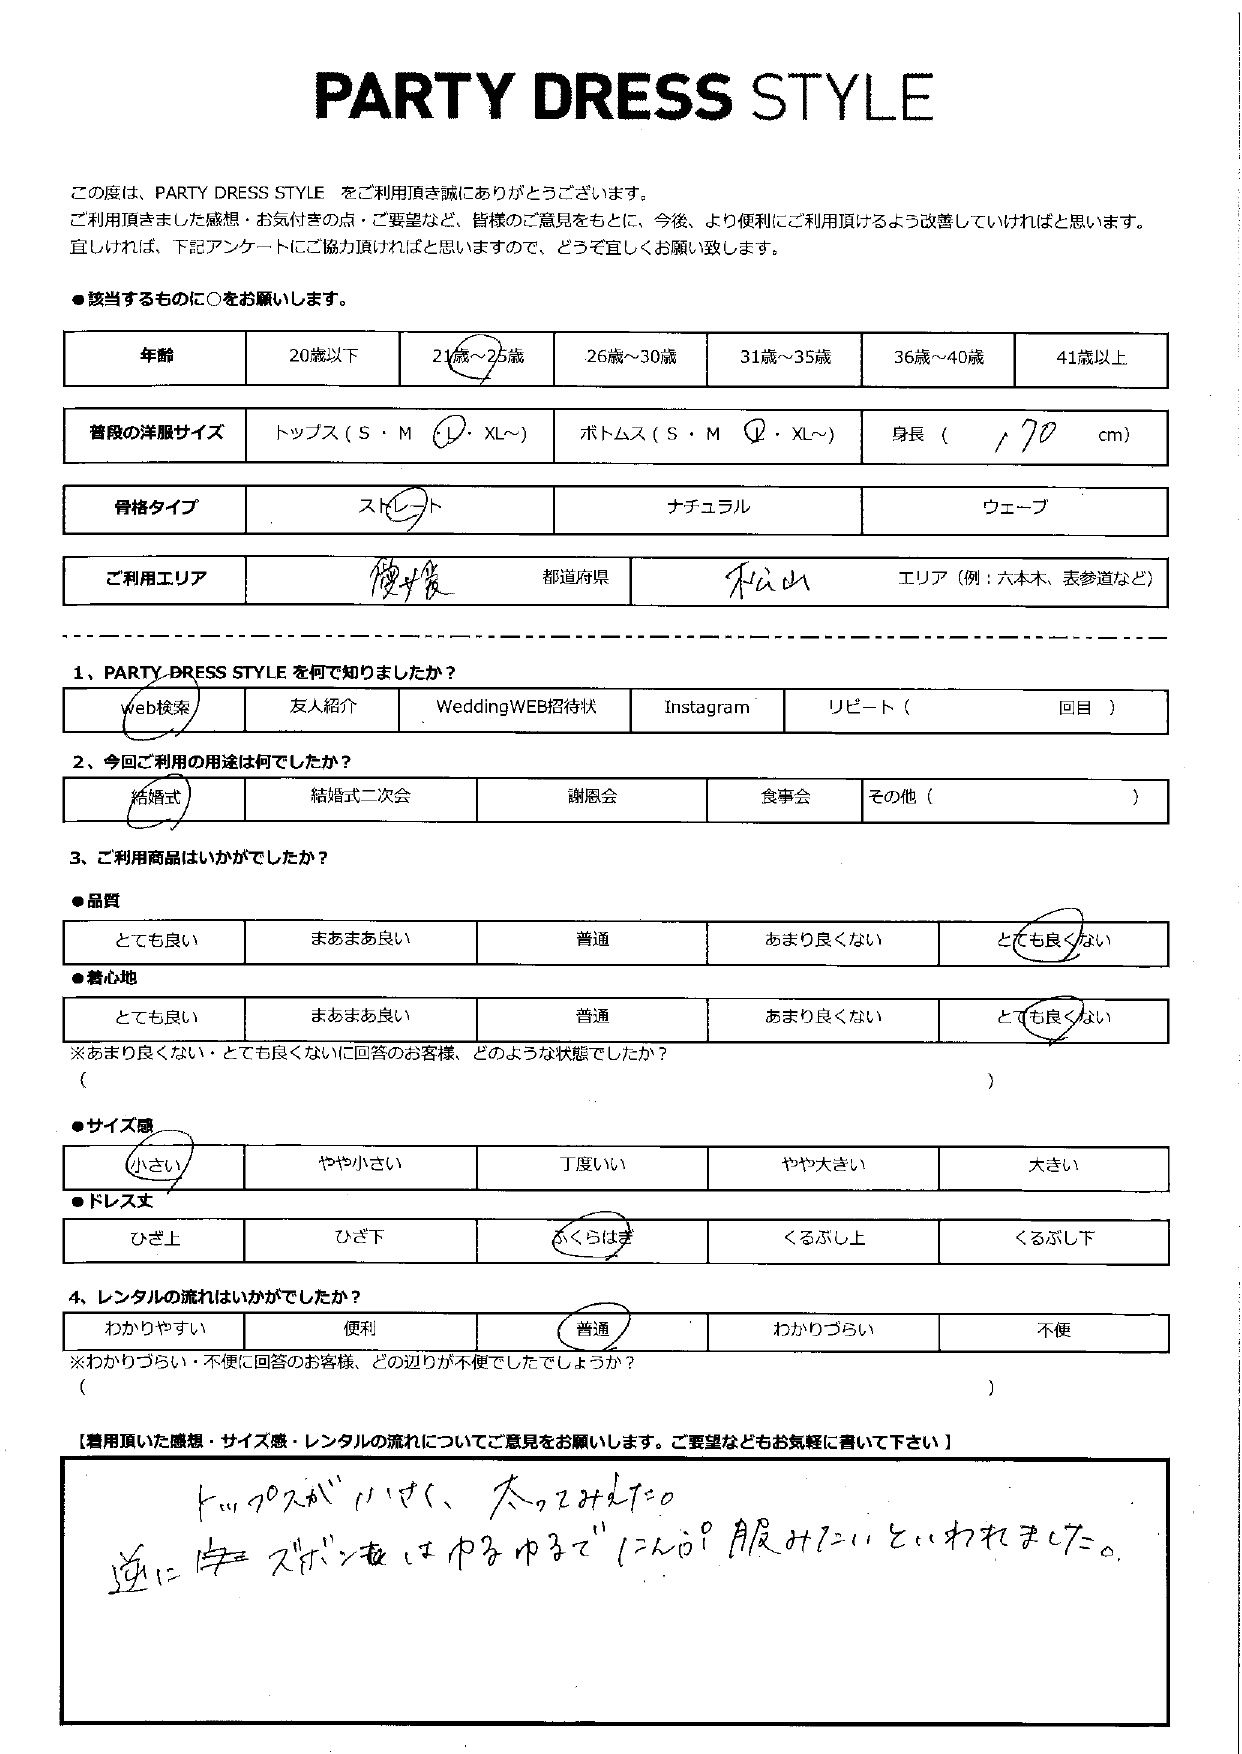 PARTY DRESS STYLE
この度は、PARTY DRESS STYLE をご利用頂き誠にありがとうございます。
ご利用頂きました感想・お気付きの点・ご要望など、皆様のご意見をもとに、今後、より便利にご利用頂けるよう改善していければと思います。
宜しければ、下記アンケートにご協力頂ければと思いますので、どうぞ宜しくお願い致します。
●該当するものに○をお願いします。
年齢 20歳以下 21歳～25歳 26歳～30歳 31歳～35歳 36歳～40歳 41歳以上
普段の洋服サイズ トップス ( S ・ M ・L・ XL～) ボトムス ( S ・ M L ・ XL～) 身長 ( 170 cm)
骨格タイプ ストレート ナチュラル ウェーブ
ご利用エリア 愛媛 都道府県 松山 エリア（例：六本木、表参道など）
1、PARTY DRESS STYLE を何で知りましたか？
web検索 友人紹介 WeddingWEB招待状 Instagram リピート（ 回目 ）
2、今回ご利用の用途は何でしたか？
結婚式 結婚式二次会 謝恩会 食事会 その他（ ）
3、ご利用商品はいかがでしたか？
●品質
とても良い まあまあ良い 普通 あまり良くない とても良くない
●着心地
とても良い まあまあ良い 普通 あまり良くない とても良くない
※あまり良くない・とても良くないに回答のお客様、どのような状態でしたか？
（ ）
●サイズ感
小さい やや小さい 丁度いい やや大きい 大きい
●ドレス丈
ひざ上 ひざ下 ふくらはぎ くるぶし上 くるぶし下
4、レンタルの流れはいかがでしたか？
わかりやすい 便利 普通 わかりづらい 不便
※わかりづらい・不便に回答のお客様、どの辺りが不便でしたでしょうか？
（ ）
【着用頂いた感想・サイズ感・レンタルの流れについてご意見をお願いします。ご要望などもお気軽に書いて下さい 】
トップスが小さく、太ってみえた。
逆に ズボン は ゆるゆるで にんぷ服みたいといわれました。